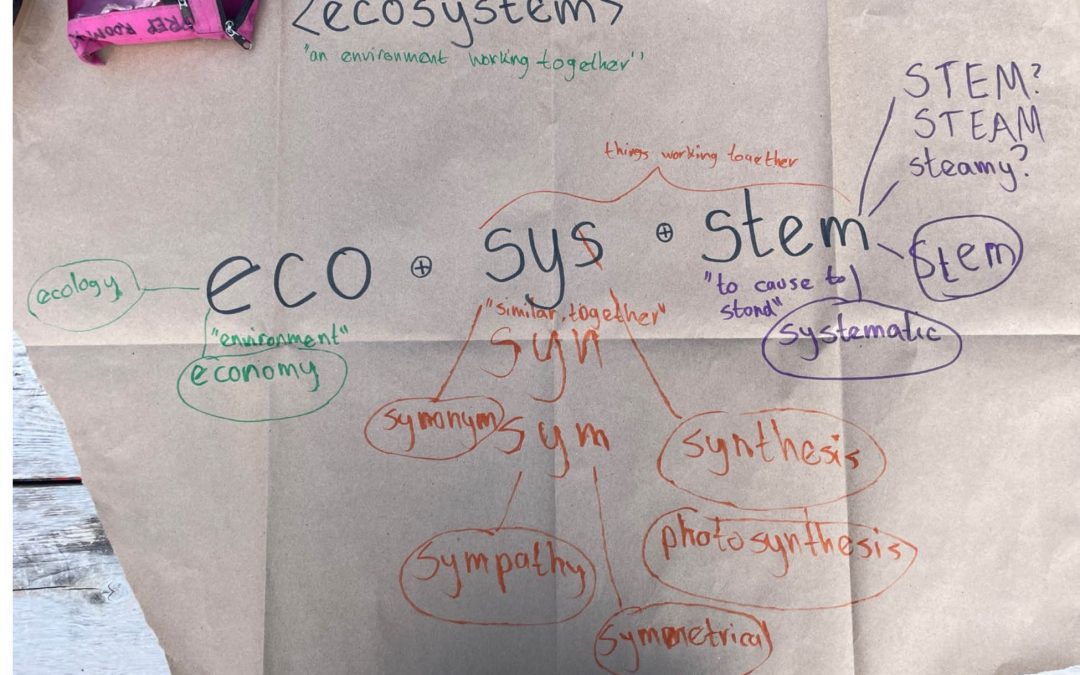 RED ROOM
<ecosystem>
"an environment working together"
STEM?
STEAM
steamy?
things working together
eco + sys + stem
stem
ecology
"environment"
"similar, together"
"to cause to
stand"
systematic
syn
economy
synonym
sym
synthesis
photosynthesis
sympathy
symmetrical